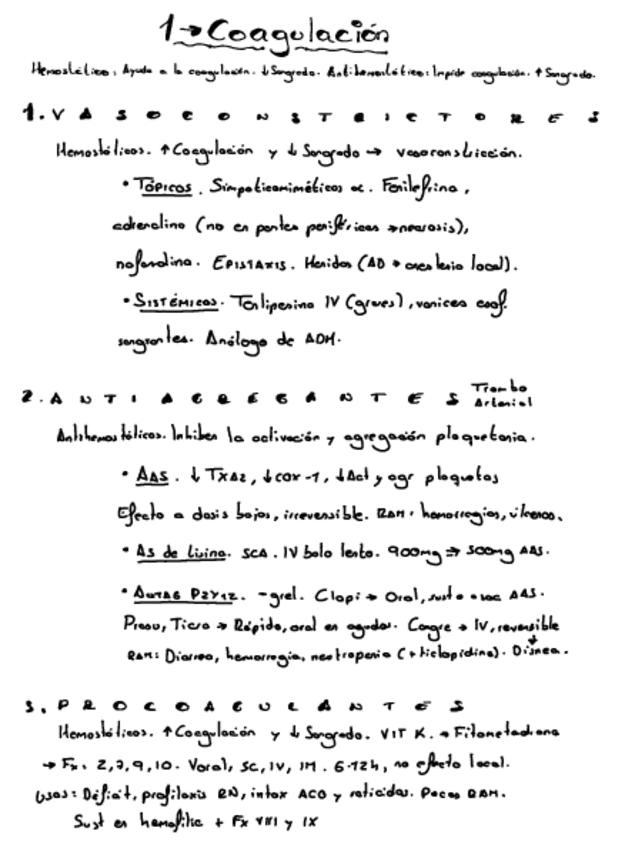 1→Coagulación
Hemostático: Ayuda a la coagulación. ↓Sangrado. Antihemostático: Impide coagulación. ↑Sangrado.
1. VASOCONSTRICTORES
Hemostáticos. ↑Coagulación y ↓Sangrado → vasoconstricción.
• Tópicos. Simpaticomiméticos α. Fenilefrina,
adrenalina (no en partes periféricas → necrosis),
nafazolina. EPISTAXIS. Heridas (AD + anestesia local).
• SISTÉMICOS. Terlipesina IV (graves), varices esof.
sangrantes. Análogo de ADH.
2. ANTIAGREGANTES Trombo
Arterial
Antihemostáticos. Inhiben la activación y agregación plaquetaria.
• AAS. ↓TXA2, ↓COX-1, ↓Act y agr plaquetas
Efecto a dosis bajas, irreversible. RAM: hemorragias, úlceras.
• AS de Lisina. SCA. IV bolo lento. 900mg ⇒ 500mg AAS.
• P2Y12. -grel. Clopi → Oral, sust o asoc AAS.
Prasu, Ticra → Rápido, oral en agudos. Cangre → IV, reversible
RAM: Diarrea, hemorragia, neutropenia (+ticlopidina). Disnea.
3. PROCOAGULANTES
Hemostáticos. ↑Coagulación y ↓Sangrado. VIT K. → Fitometadiona
→ Fx. 2, 7, 9, 10. Voral, SC, IV, IM. 6-12h, no efecto local.
Usos: Déficit, profilaxis RN, intox ACO y raticidas. Pocas RAM.
Sust en hemofilia + Fx VIII y IX